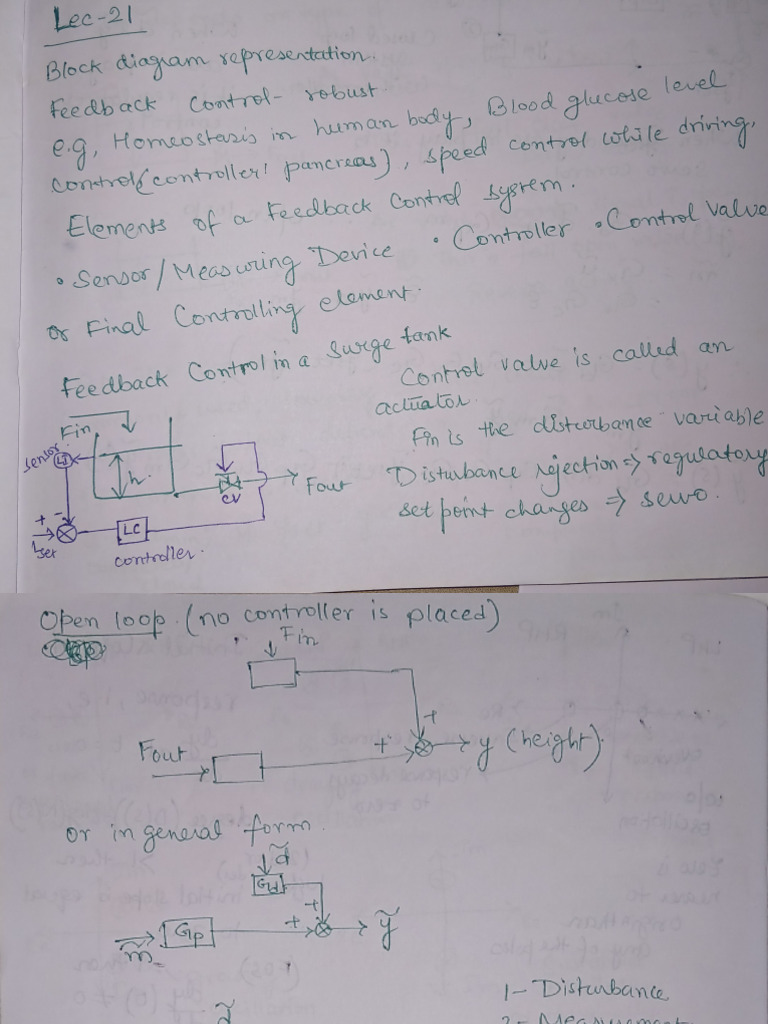 Lec-21
Block diagram representation.
Feedback Control- robust
e.g, Homeostasis in human body, Blood glucose level
control(controller: pancreas), speed control while driving,
Elements of a Feedback Control system.
• Sensor/Measuring Device • Controller • Control Valve
or Final Controlling element.
Feedback Control in a surge tank
Control valve is called an
actuator.
Fin is the disturbance variable
Disturbance rejection ⇒ regulatory
set point changes ⇒ servo.
Fin
sensor LT
h
CV
Fout
+ -
hset
LC
controller.
Open loop (no controller is placed)
Fin
+
Fout
+
y (height)
or in general form.
d̃
Gd
+
m̃
Gp
+
ỹ
d̃
1- Disturbance
2- Measurement